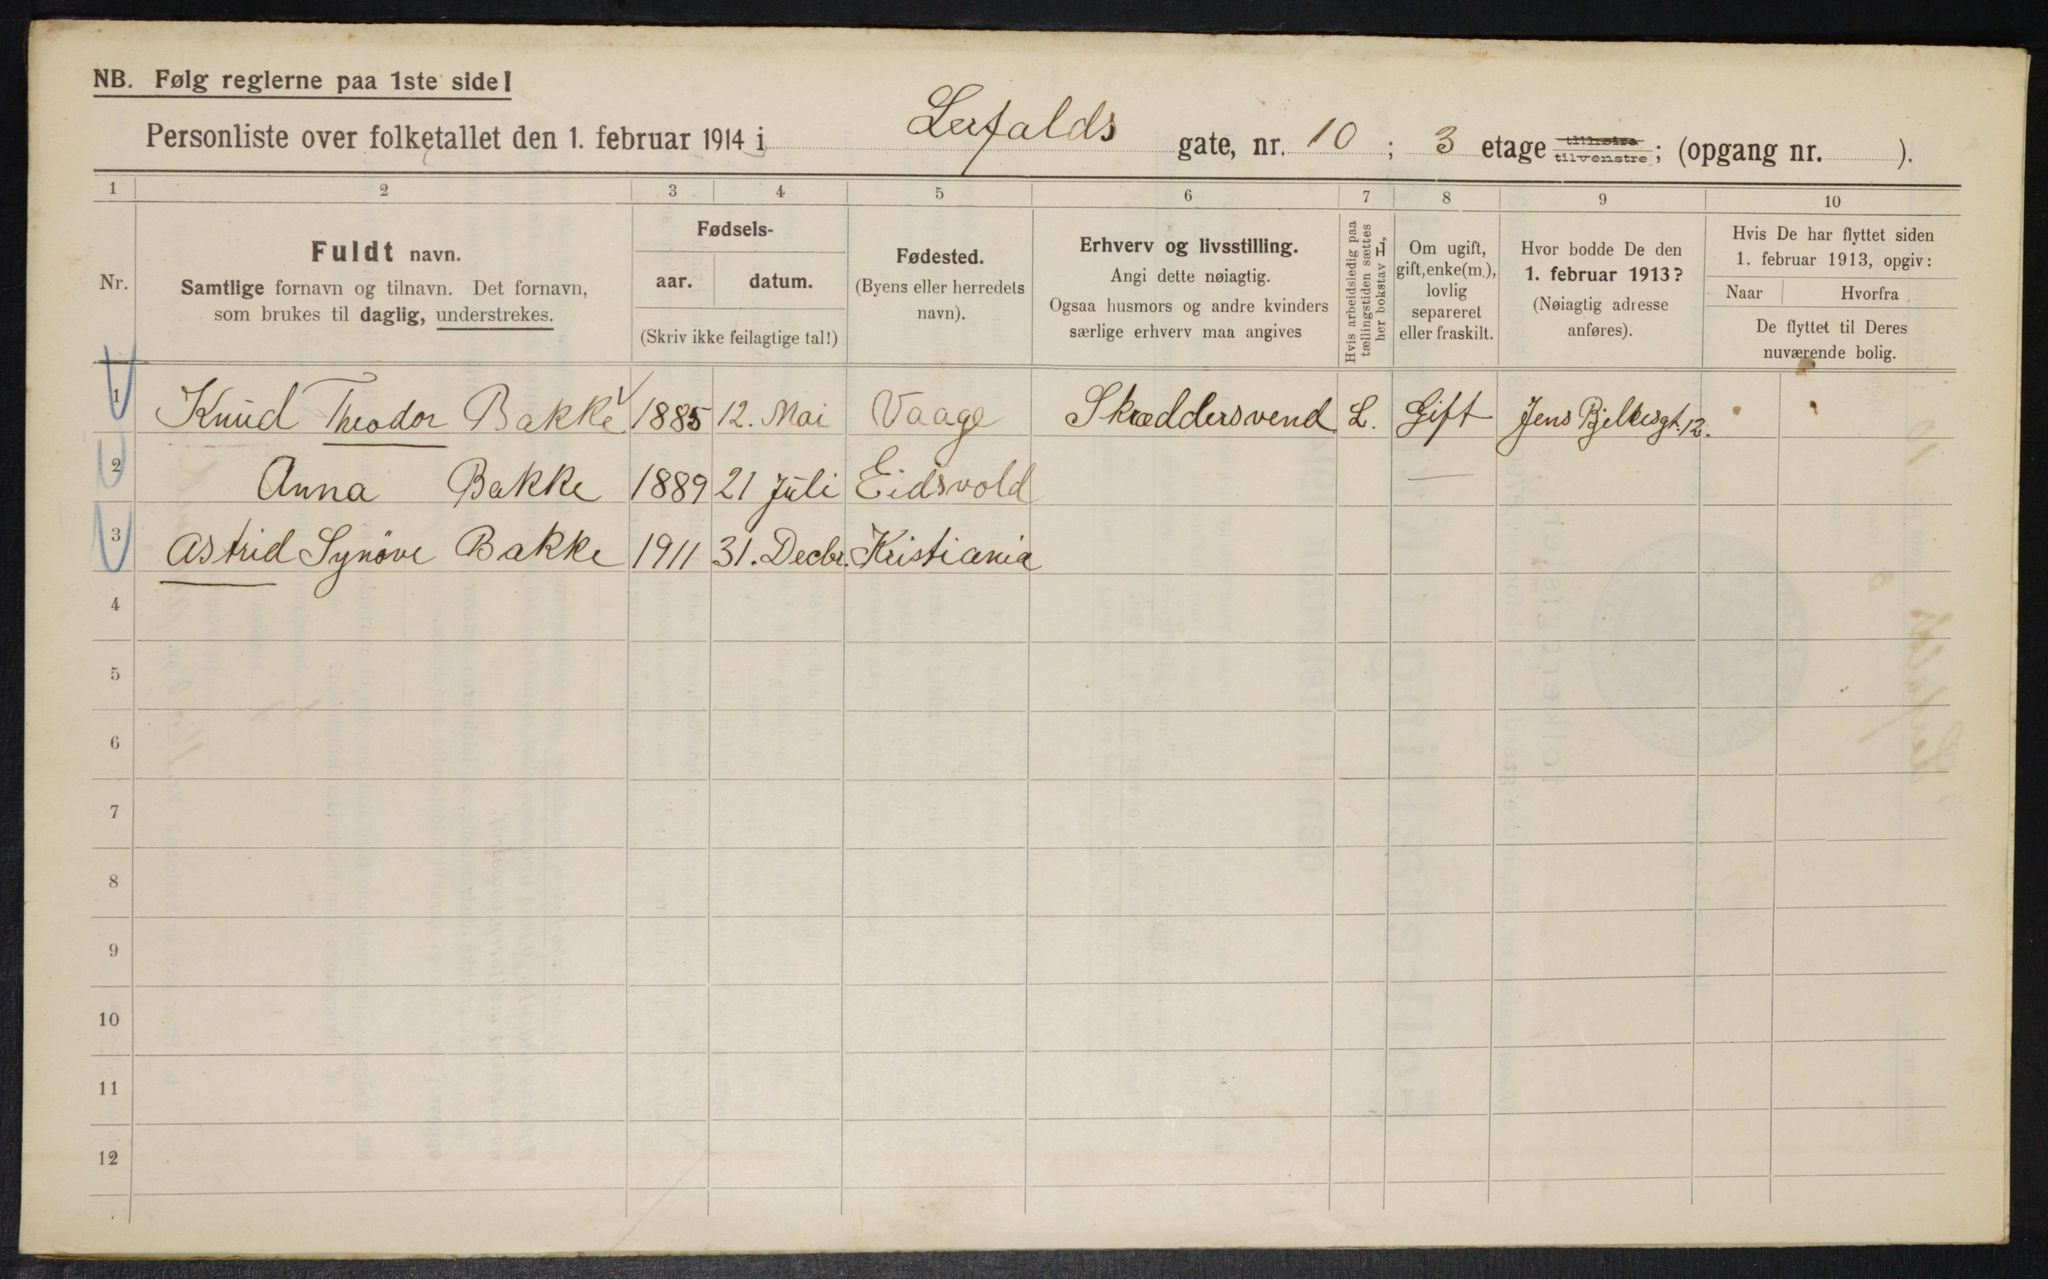 NB. Følg reglerne paa 1ste side!
Personliste over folketallet den 1. februar 1914 i Lerfalds gate, nr. 10 ; 3 etage tilhøire tilvenstre; (opgang nr. ).
1 2 3 4 5 6 7 8 9 10
Nr.
Fuldt navn.
Samtlige fornavn og tilnavn. Det fornavn,
som brukes til daglig, understrekes.
Fødsels-
aar. datum.
(Skriv ikke feilagtige tal!)
Fødested.
(Byens eller herredets
navn).
Erhverv og livsstilling.
Angi dette nøiagtig.
Ogsaa husmors og andre kvinders
særlige erhverv maa angives
Hvis arbeidsledig paa
tællingstiden sættes
her bokstav L.
Om ugift,
gift, enke(m.),
lovlig
separeret
eller fraskilt.
Hvor bodde De den
1. februar 1913?
(Nøiagtig adresse
anføres).
Hvis De har flyttet siden
1. februar 1913, opgiv:
Naar Hvorfra
De flyttet til Deres
nuværende bolig.
1 Knud Theodor Bakke 1885 12. Mai Vaage Skræddersvend L. Gift Jens Bjelkesgt. 12.
2 Anna Bakke 1889 21 Juli Eidsvold —
3 Astrid Synøve Bakke 1911 31. Decbr. Kristiania
4
5
6
7
8
9
10
11
12